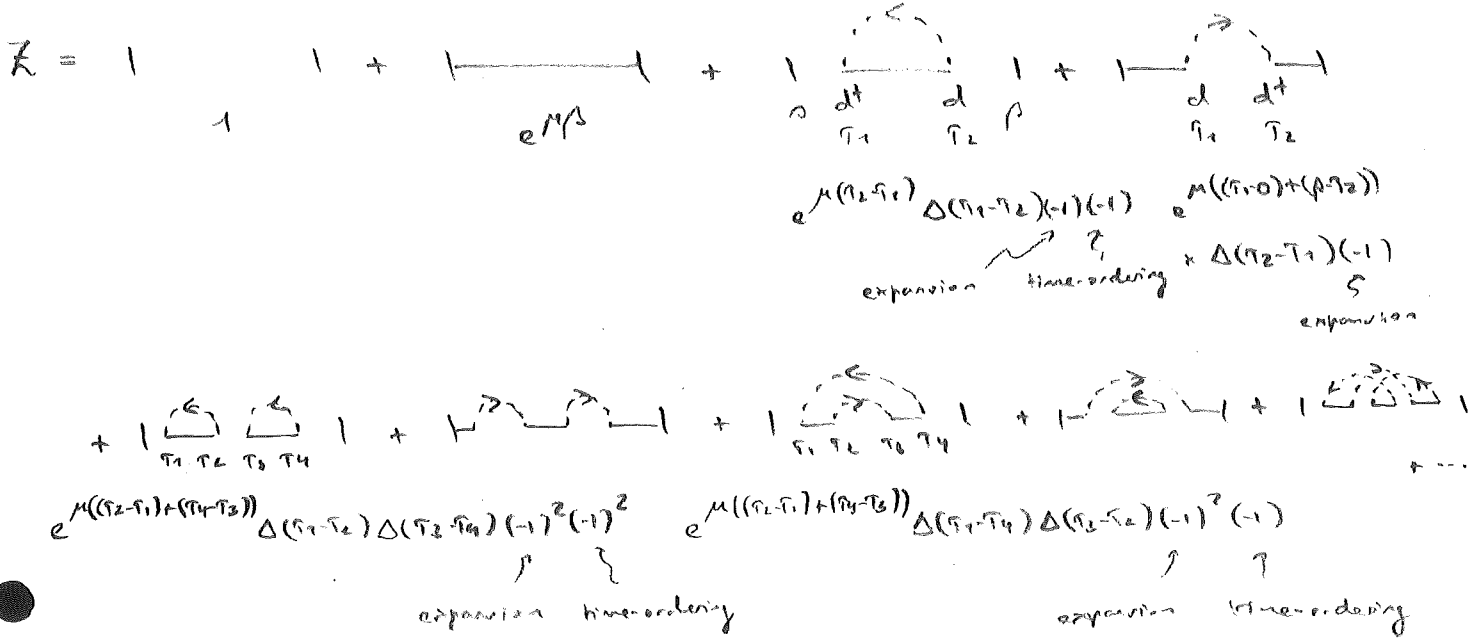 Z = | | + |—| + | | + |— —|
1 e^{μβ} 0 d† d β d d†
τ1 τ2 τ1 τ2
e^{μ(τ2-τ1)} Δ(τ1-τ2)(-1)(-1) e^{μ((τ1-0)+(β-τ2))}
expansion time-ordering × Δ(τ2-τ1)(-1)
expansion
+ | | + | | + | | + | | + | |
τ1 τ2 τ3 τ4 τ1 τ2 τ3 τ4 + ...
e^{μ((τ2-τ1)+(τ4-τ3))} Δ(τ1-τ2) Δ(τ3-τ4) (-1)^2 (-1)^2 e^{μ((τ2-τ1)+(τ4-τ3))} Δ(τ1-τ4) Δ(τ3-τ2) (-1)^2 (-1)
expansion time-ordering expansion time-ordering